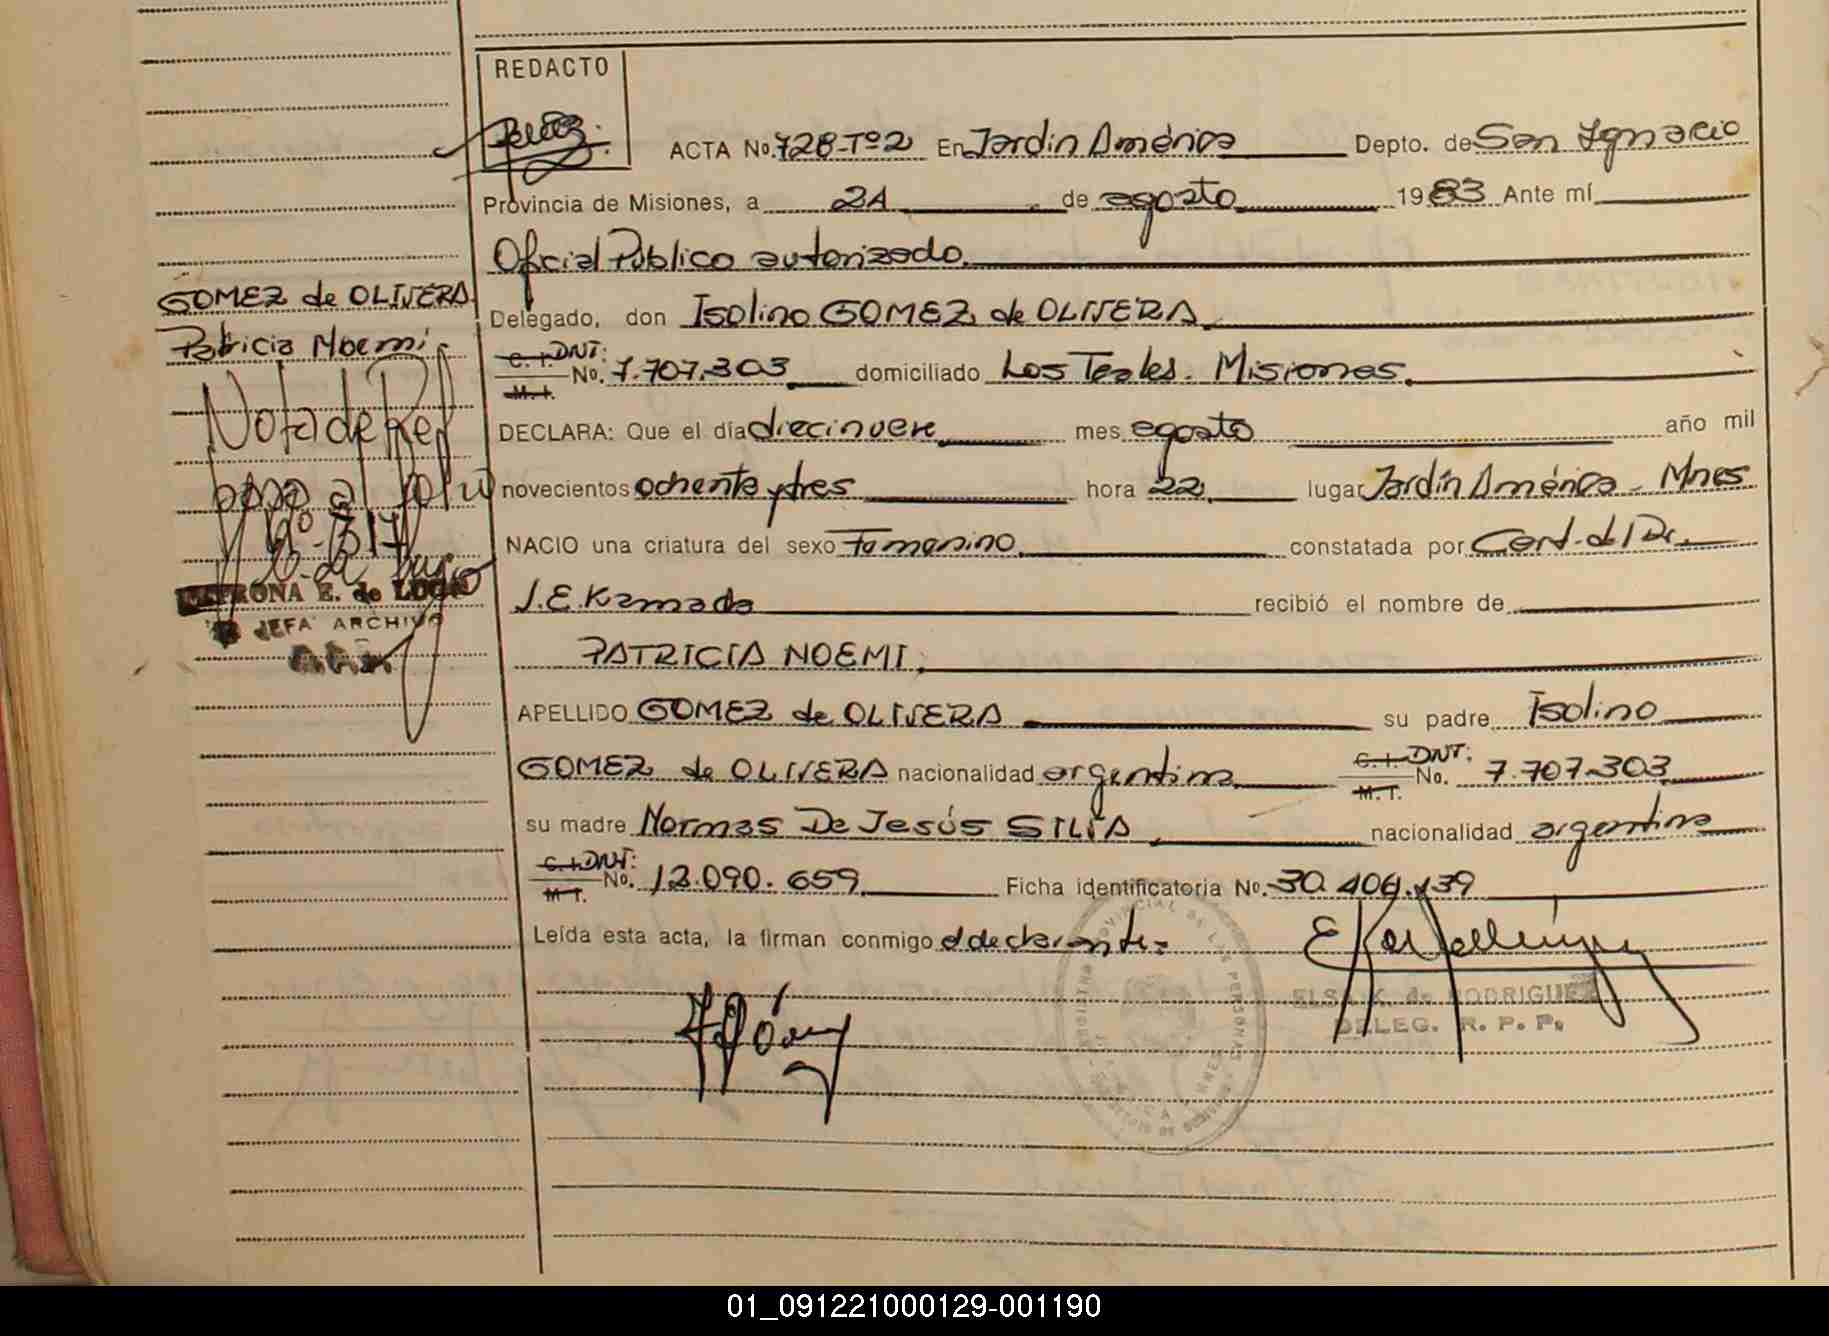 REDACTO
ACTA No. 728-Tº2 En Jardin América Depto. de San Ignacio
Provincia de Misiones, a 24 de agosto 1983 Ante mí
Oficial Público autorizado.
Delegado, don Isolino GOMEZ de OLIVERA
C. I. DNI: No. 7.707.303 M. I. domiciliado Los Teales. Misiones.
DECLARA: Que el día diecinueve mes agosto año mil
novecientos ochenta y tres hora 22 lugar Jardín América - Mnes
NACIO una criatura del sexo Femenino. constatada por Cert. del Dr.
J.E. Kamada recibió el nombre de
PATRICIA NOEMI.
APELLIDO GOMEZ de OLIVERA su padre Isolino
GOMEZ de OLIVERA nacionalidad argentina C. I. DNI: No. 7.707.303 M. I.
su madre Normas De Jesús SILVA nacionalidad argentina
C. I. DNI: No. 12.090.659 M. I. Ficha identificatoria No. 30.404.139
Leída esta acta, la firman conmigo el declarante.-
ELSA K. de RODRIGUEZ
DELEG. R. P. P.
GOMEZ de OLIVERA
Patricia Noemi.
Nota de Ref
pasa al folio
Nº 317
E. de LUGO
JEFA ARCHIVO
01_091221000129-001190